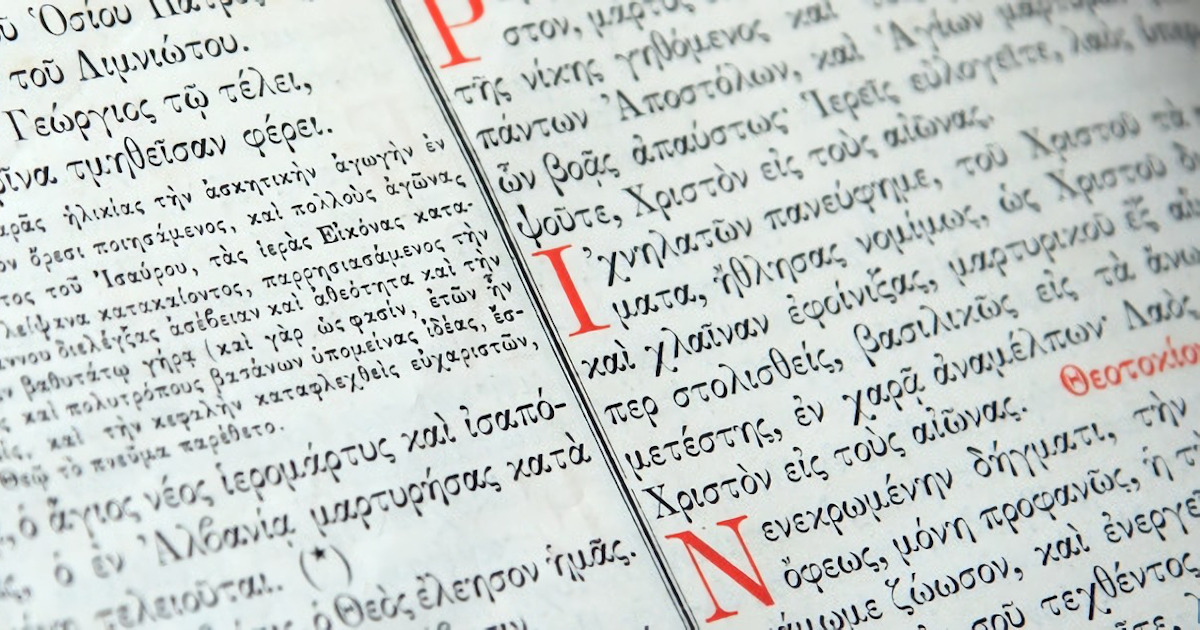 Ὁσίου
τοῦ Λιμνιώτου.
Γεώργιος τῷ τέλει,
τμηθεῖσαν φέρει.
ἡλικίας τὴν ἀσκητικὴν ἀγωγὴν ἐν
ὄρεσι ποιησάμενος, καὶ πολλοὺς ἀγῶνας
τοῦ Ἰσαύρου, τὰς ἱερὰς Εἰκόνας κατα-
λείψανα κατακαίοντος, παρρησιασάμενος τὴν
διελέγξας ἀσέβειαν καὶ ἀθεότητα καὶ τὴν
βαθυτάτῳ γήρᾳ (καὶ γὰρ ὥς φασίν, ἐτῶν ἦν
καὶ πολυτρόπους βασάνων ὑπομείνας ἰδέας, ἔσ-
καὶ τὴν κεφαλὴν καταφλεχθεὶς εὐχαριστῶν,
Θεῷ τὸ πνεῦμα παρέθετο.
ὁ ἅγιος νέος ἱερομάρτυς καὶ ἰσαπό-
ὁ ἐν Ἀλβανίᾳ μαρτυρήσας κατὰ
τελειοῦται. (*)
ὁ Θεὸς ἐλέησον ἡμᾶς.
Ρ
στον,
τῆς νίκης γηθόμενος καὶ
πάντων Ἀποστόλων, καὶ Ἁγίων
ὧν βοᾷς ἀπαύστως· Ἱερεῖς εὐλογεῖτε, λαὸς
ψοῦτε, Χριστὸν εἰς τοὺς αἰῶνας.
Ἰχνηλατῶν πανεύφημε, τοῦ Χριστοῦ τὰ
ματα, ἤθλησας νομίμως, ὡς Χριστοῦ
καὶ χλαῖναν ἐφοίνιξας, μαρτυρικοῦ ἐξ
περ στολισθείς, βασιλικῶς εἰς τὰ ἄνω
μετέστης, ἐν χαρᾷ ἀναμέλπων· Λαὸς
Χριστὸν εἰς τοὺς αἰῶνας. Θεοτοκίον
Νενεκρωμένην δήγματι, τὴν
ὄφεως, μόνη προφανῶς, ἡ
ζώωσον, καὶ
σοῦ τεχθέντος